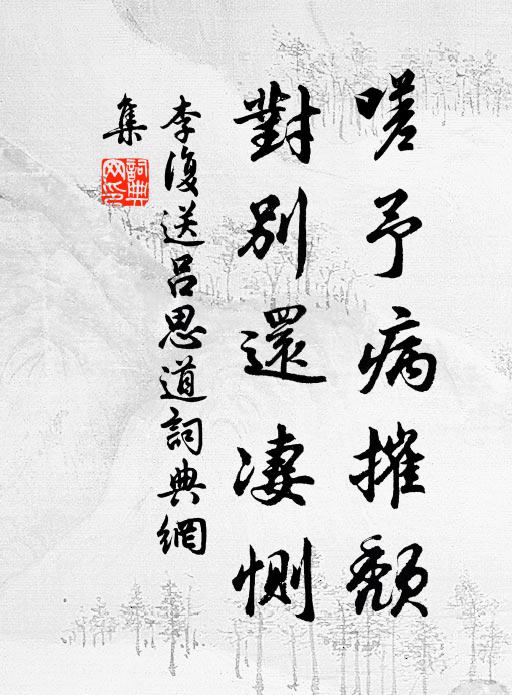 嗟予病摧頹
對別還凄惻
李復送呂思道詞典網
集
詞典網